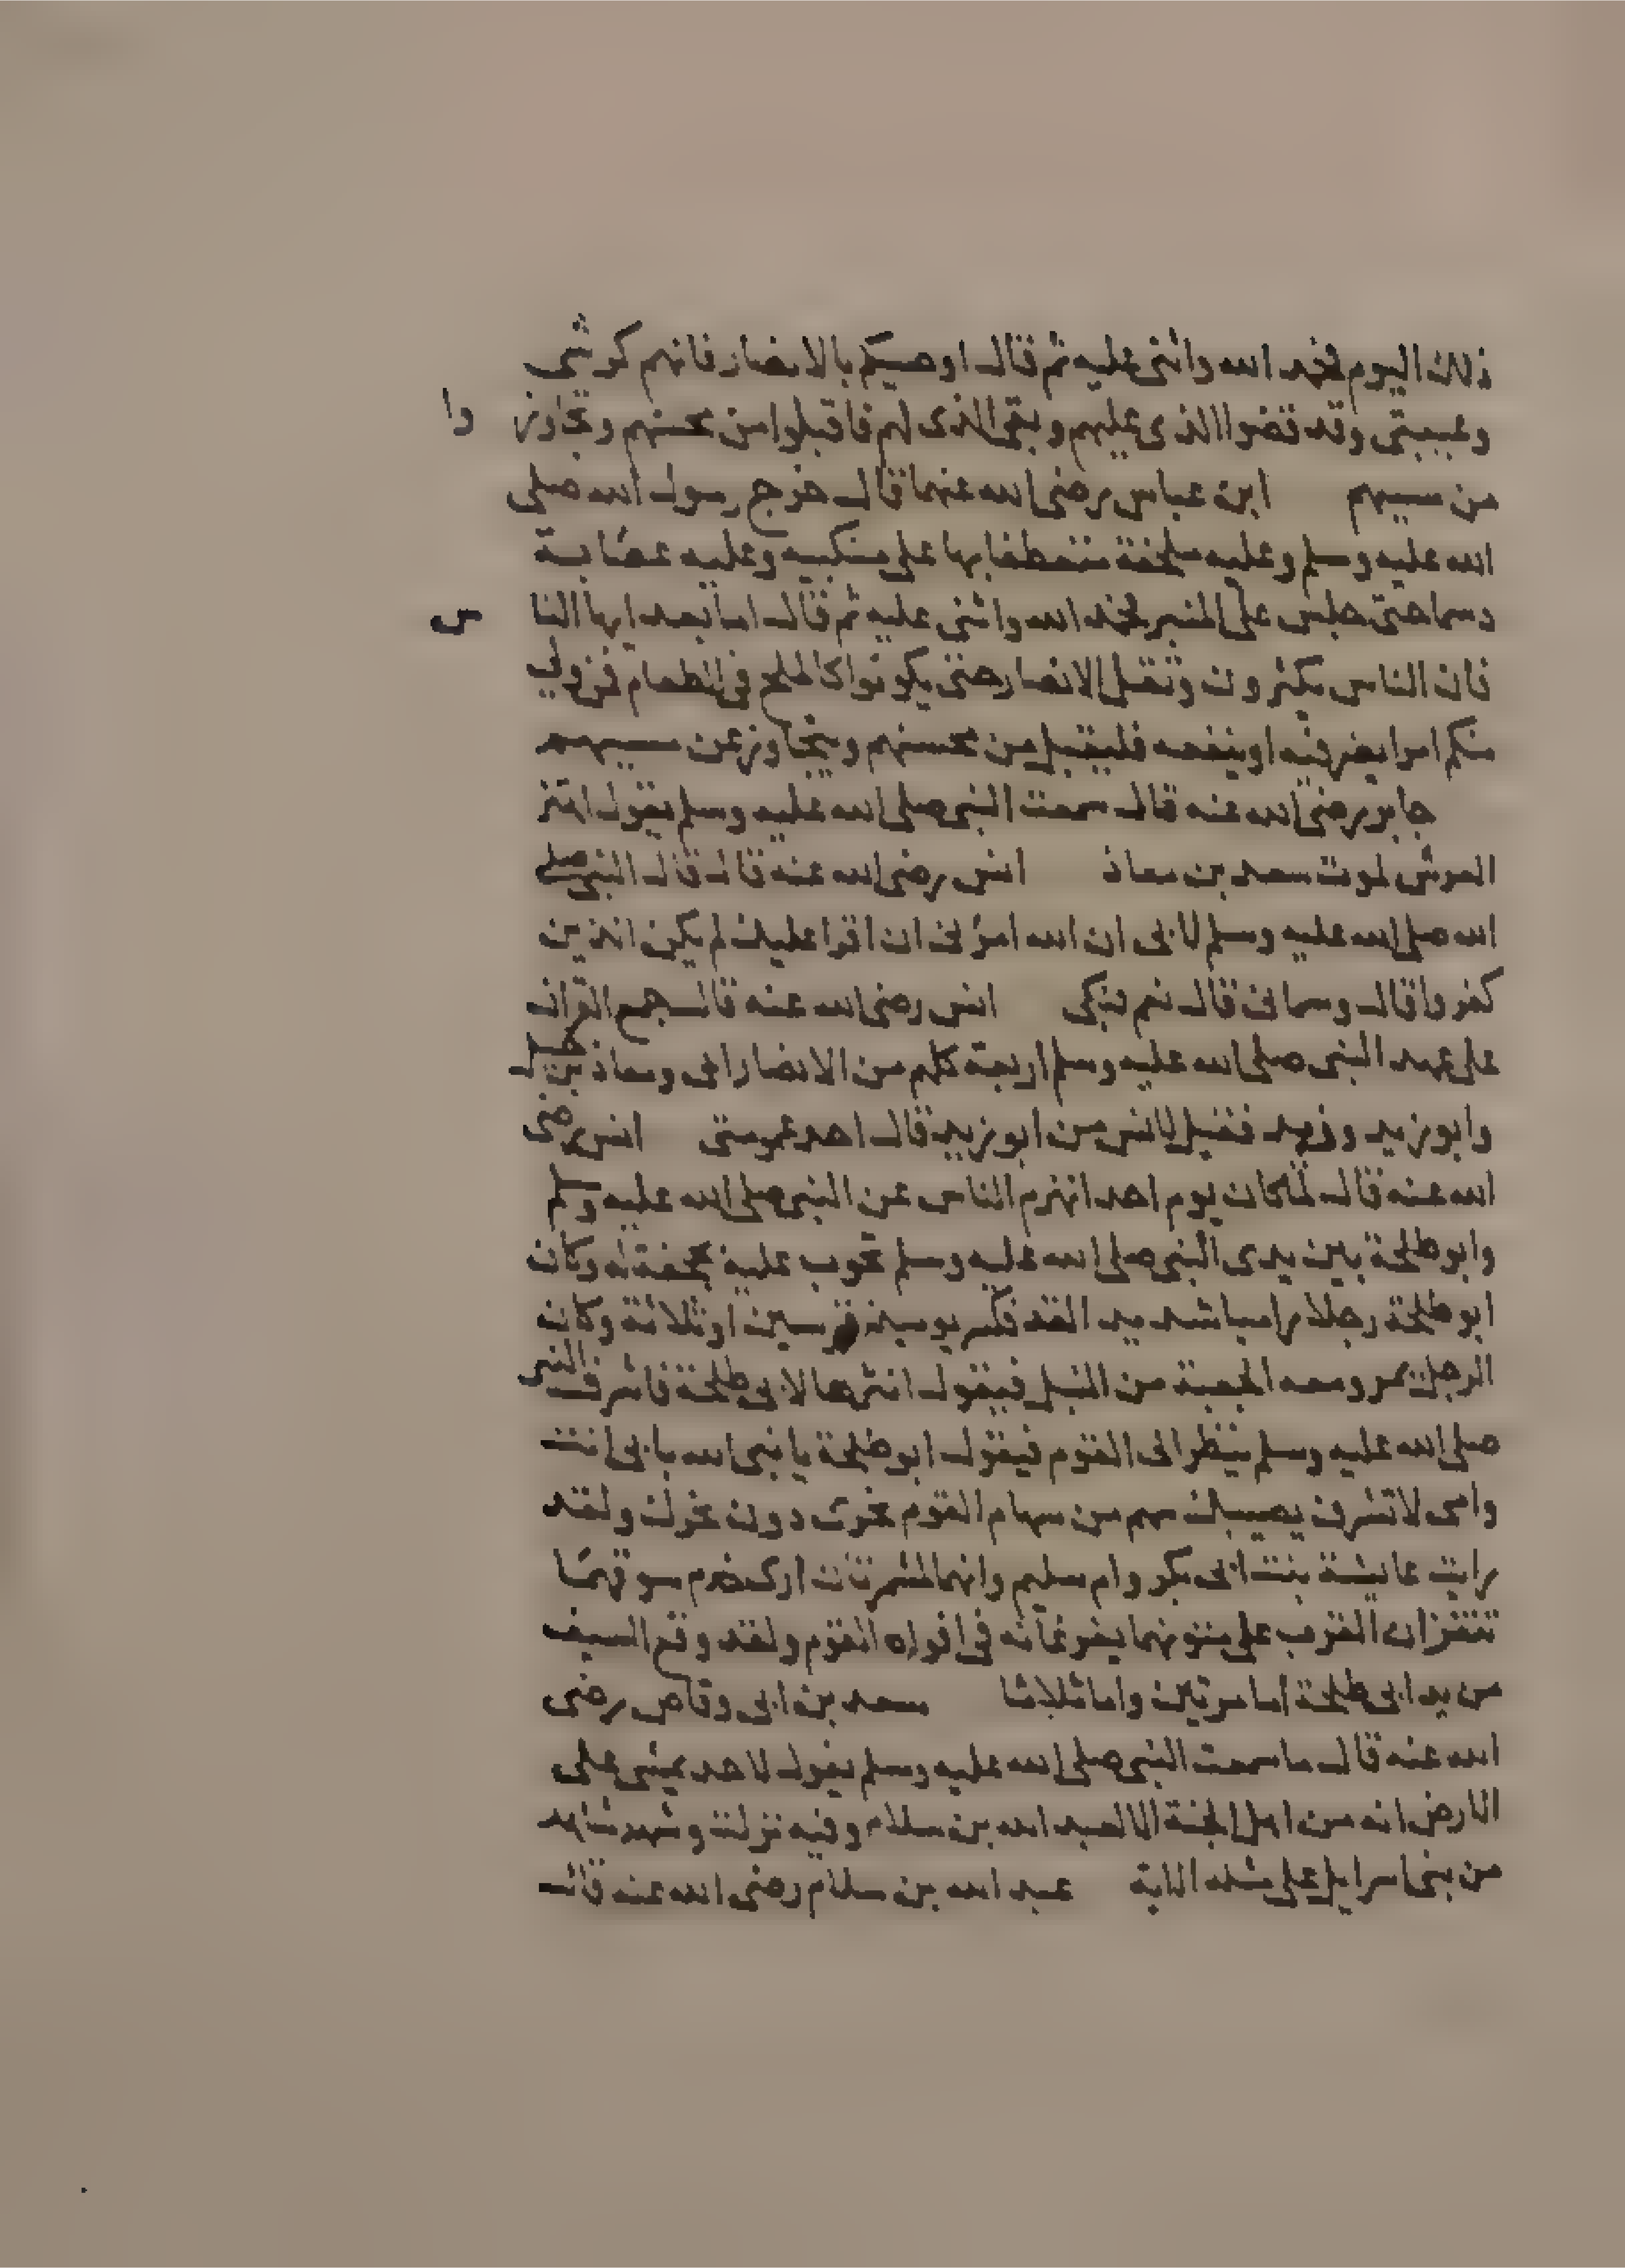 ذلك اليوم فحمد الله واثنى عليه ثم قال اوصيكم بالانصار فانهم كرشي
وعيبتي وقد قضوا الذي عليهم وبقي الذي لهم فاقبلوا من محسنهم وتجاوزوا
من مسيهم ابن عباس رضي الله عنهما قال خرج رسول الله صلى
الله عليه وسلم وعليه ملحفة متعطفا بها على منكبيه وعليه عصابة
دسما حتى جلس على المنبر فحمد الله واثنى عليه ثم قال اما بعد ايها الناس
فان الناس يكثرون وتقل الانصار حتى يكونوا كالملح في الطعام فمن ولي
منكم امرا يضر فيه او ينفعه فليقبل من محسنهم ويتجاوز عن مسيهم
جابر رضي الله عنه قال سمعت النبي صلى الله عليه وسلم يقول اهتز
العرش لموت سعد بن معاذ انس رضي الله عنه قال قال النبي صلى
الله صلى الله عليه وسلم لابي ان الله امرني ان اقرا عليك لم يكن الذين
كفروا قال وسماني قال نعم فبكى انس رضي الله عنه قال جمع القران
على عهد النبي صلى الله عليه وسلم اربعة كلهم من الانصار ابي ومعاذ بن جبل
وابو زيد وزيد فقيل لانس من ابو زيد قال احد عمومتي انس رضي
الله عنه قال لما كان يوم احد انهزم الناس عن النبي صلى الله عليه وسلم
وابو طلحة بين يدي النبي صلى الله عليه وسلم مجوب عليه بحجفة له وكان
ابو طلحة رجلا راميا شديد القد فكسر يوميذ قوسين او ثلاثة وكان
الرجل يمر ومعه الجعبة من النبل فيقول انثرها لابي طلحة فاشرف النبي
صلى الله عليه وسلم ينظر الى القوم فيقول ابو طلحة يا نبي الله بابي انت
وامي لا تشرف يصيبك سهم من سهام القوم نحري دون نحرك ولقد
رايت عايشة بنت ابي بكر وام سليم وانهما لمشمرتان ارى خدم سوقهما
تنقزان القرب على متونهما يفرغانه في افواه القوم ولقد وقع السيف
من يد ابي طلحة اما مرتين واما ثلاثا سعد بن ابي وقاص رضي
الله عنه قال ما سمعت النبي صلى الله عليه وسلم يقول لاحد يمشي على
الارض انه من اهل الجنة الا لعبد الله بن سلام وفيه نزلت وشهد شاهد
من بني اسرايل على مثله الاية عبد الله بن سلام رضي الله عنه قال